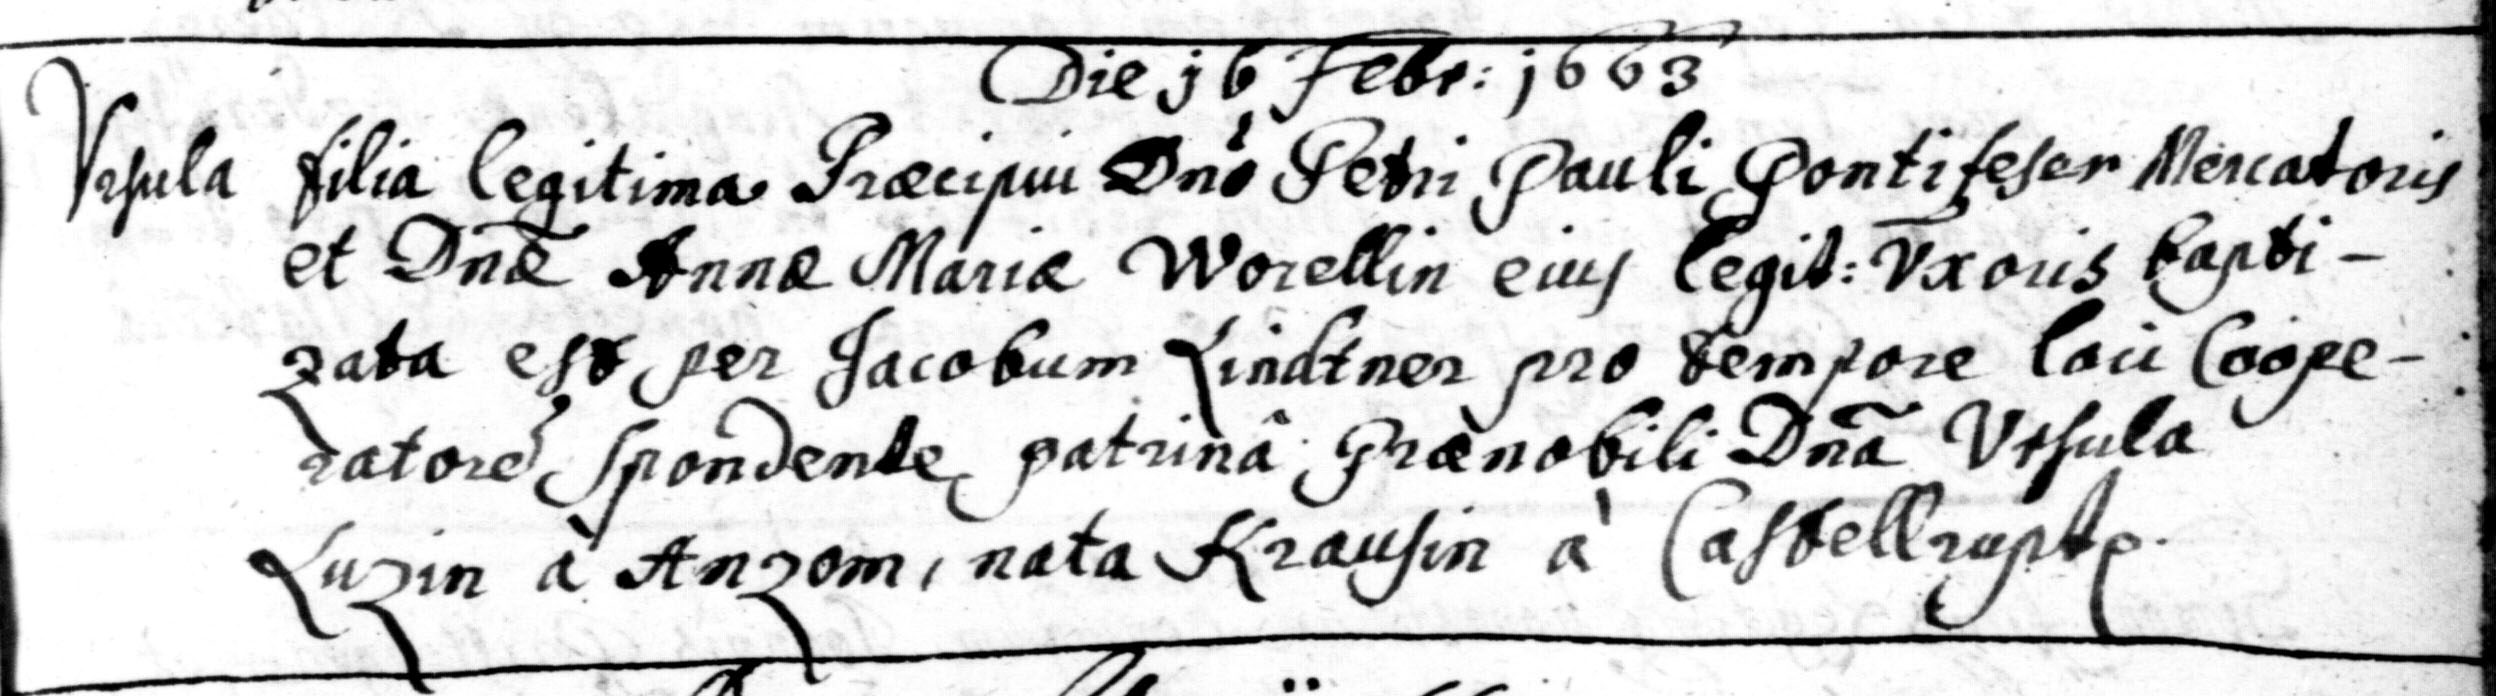 Die 16 Febr: 1663
Vrsula filia legitima Præcipui Dni Petri Pauli Pontifeser Mercatoris
et Dnæ Annæ Mariæ Worellin eius legit: Vxoris bapti-
zata est per Jacobum Lindtner pro tempore loci Coope-
ratore spondente patrinâ Prænobili Dnã Vrsula
Luzin à Anzom, nata Krausin à Castellrupt